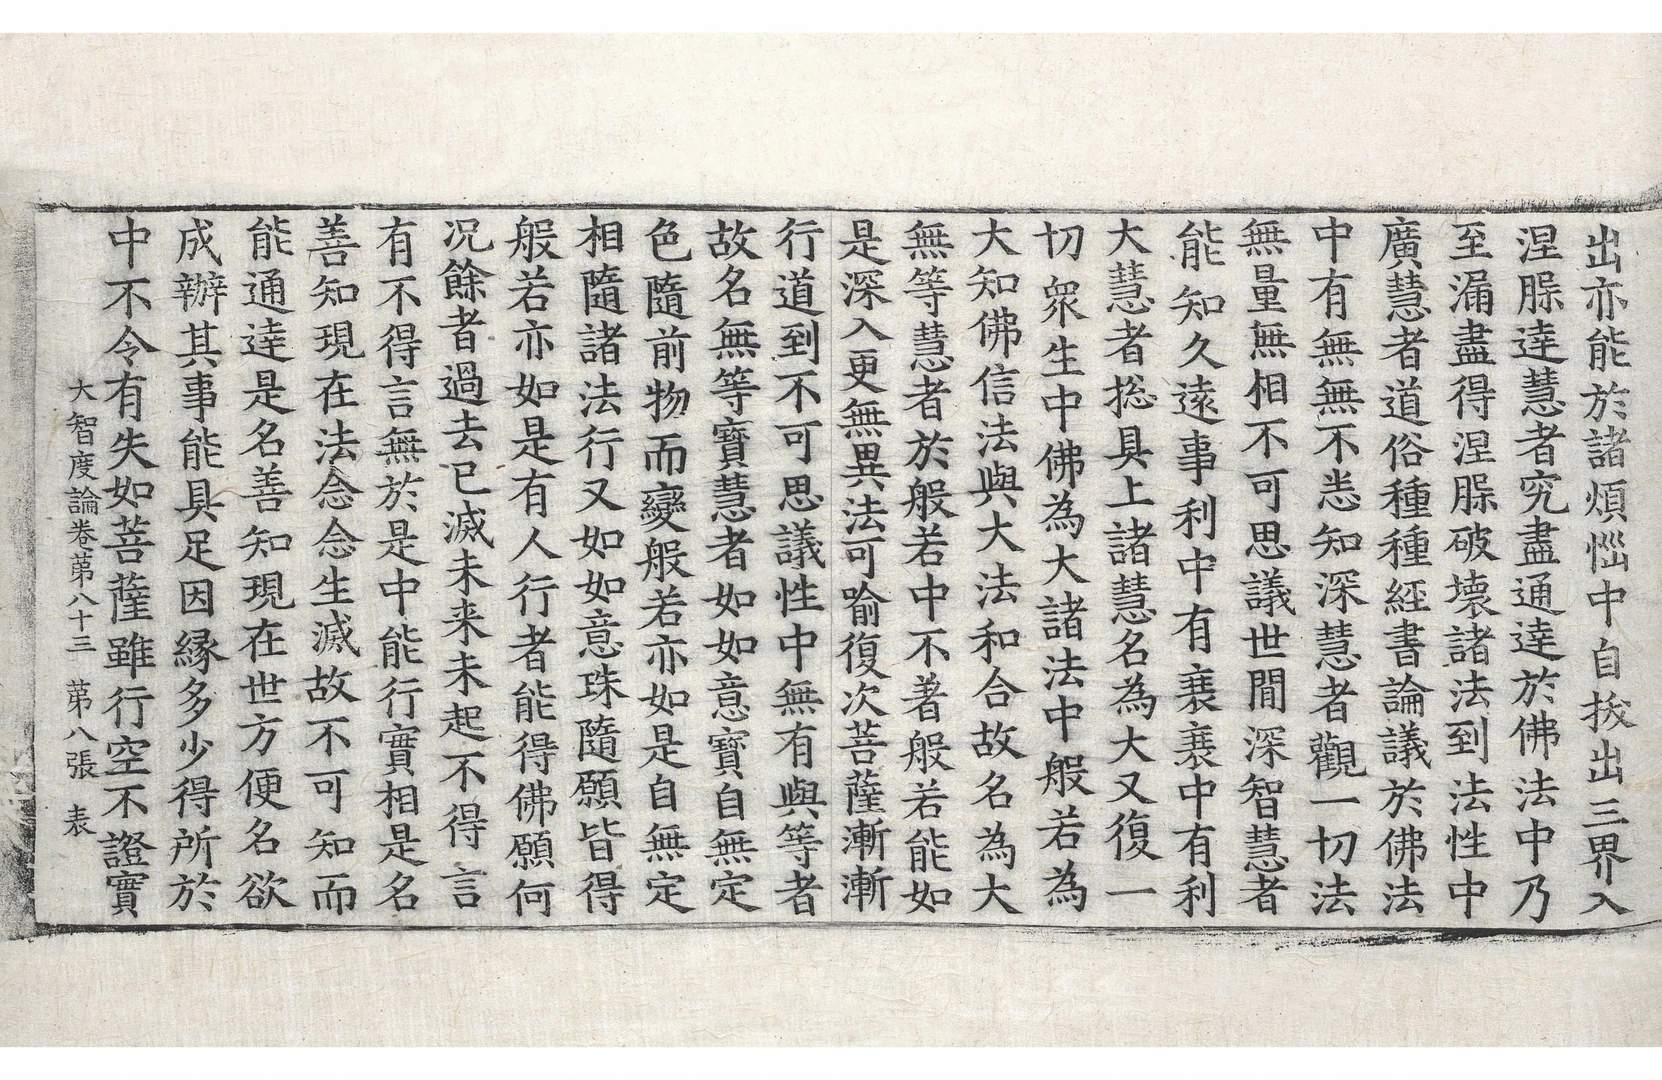 出亦能於諸煩惱中自拔出三界入
涅脲達慧者究盡通達於佛法中乃
至漏盡得涅脲破壞諸法到法性中
廣慧者道俗種種經書論議於佛法
中有無無不悉知深慧者觀一切法
無量無相不可思議世間深智慧者
能知久遠事利中有衰衰中有利
大慧者揔具上諸慧名為大又復一
切衆生中佛為大諸法中般若為
大知佛信法與大法和合故名為大
無等慧者於般若中不著般若能如
是深入更無異法可喻復次菩薩漸漸
行道到不可思議性中無有與等者
故名無等寶慧者如如意寶自無定
色隨前物而變般若亦如是自無定
相隨諸法行又如如意珠隨願皆得
般若亦如是有人行者能得佛願何
况餘者過去已滅未来未起不得言
有不得言無於是中能行實相是名
善知現在法念念生滅故不可知而
能通達是名善知現在世方便名欲
成辦其事能具足因緣多少得所於
中不令有失如菩薩雖行空不證實
大智度論卷苐八十三 苐八張 表